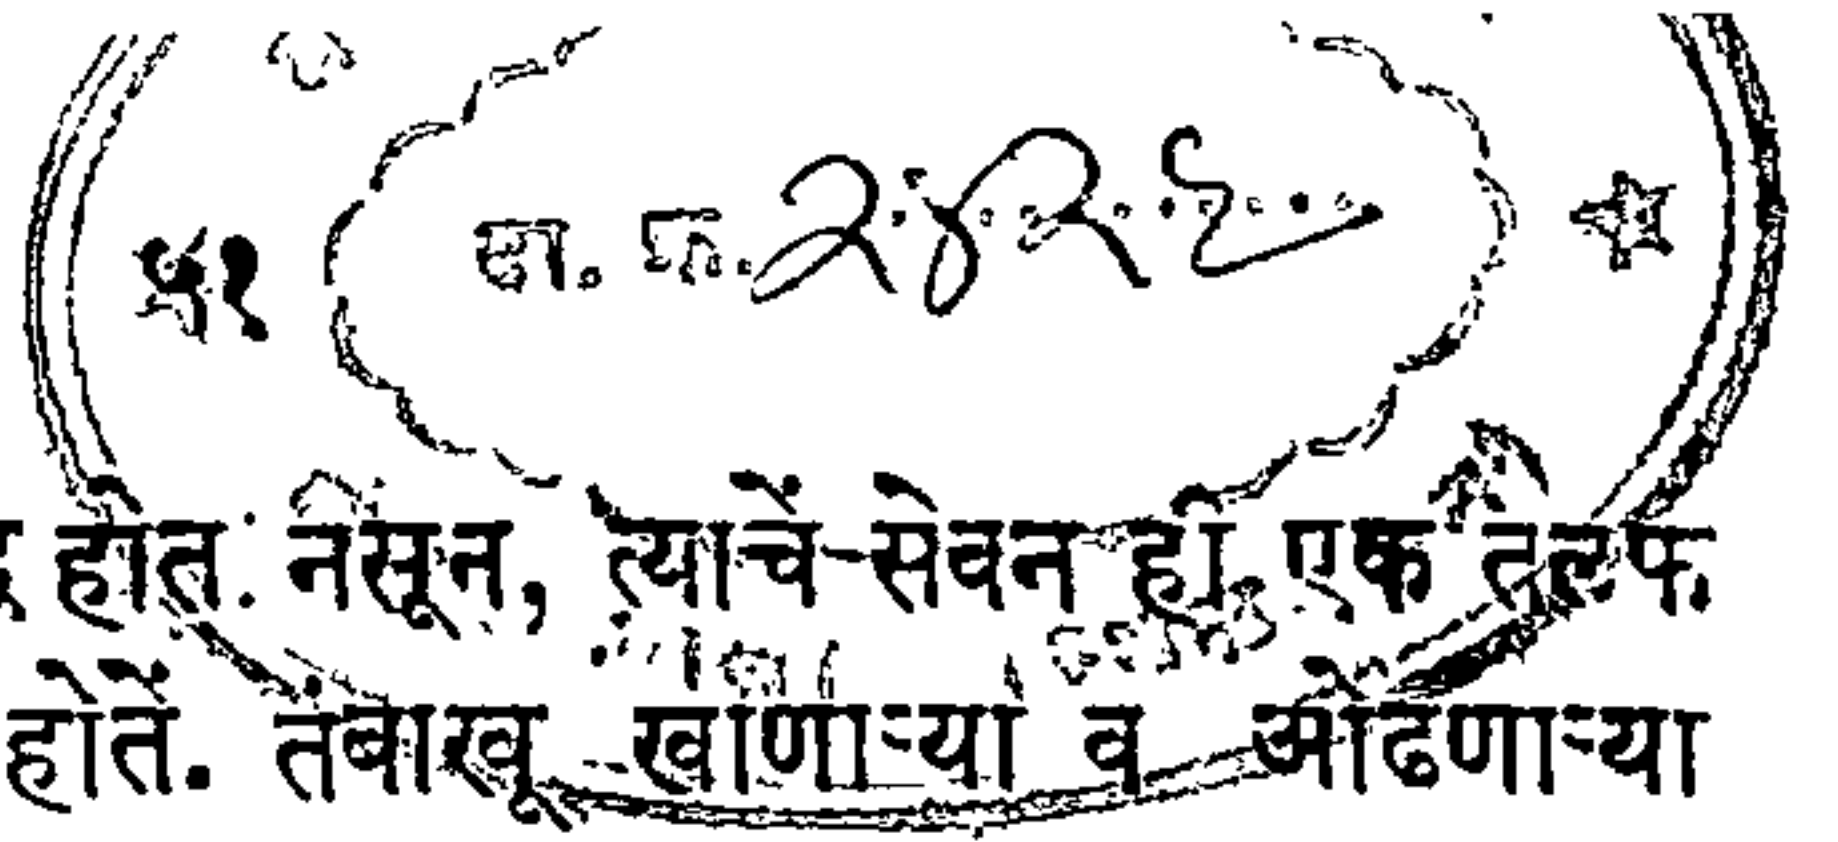 ५१
दा. क्र. २४२६
होत नसून, त्याचें सेवन ही एक तलफ
होतें. तंबाखू खाणाऱ्या व ओढणाऱ्या